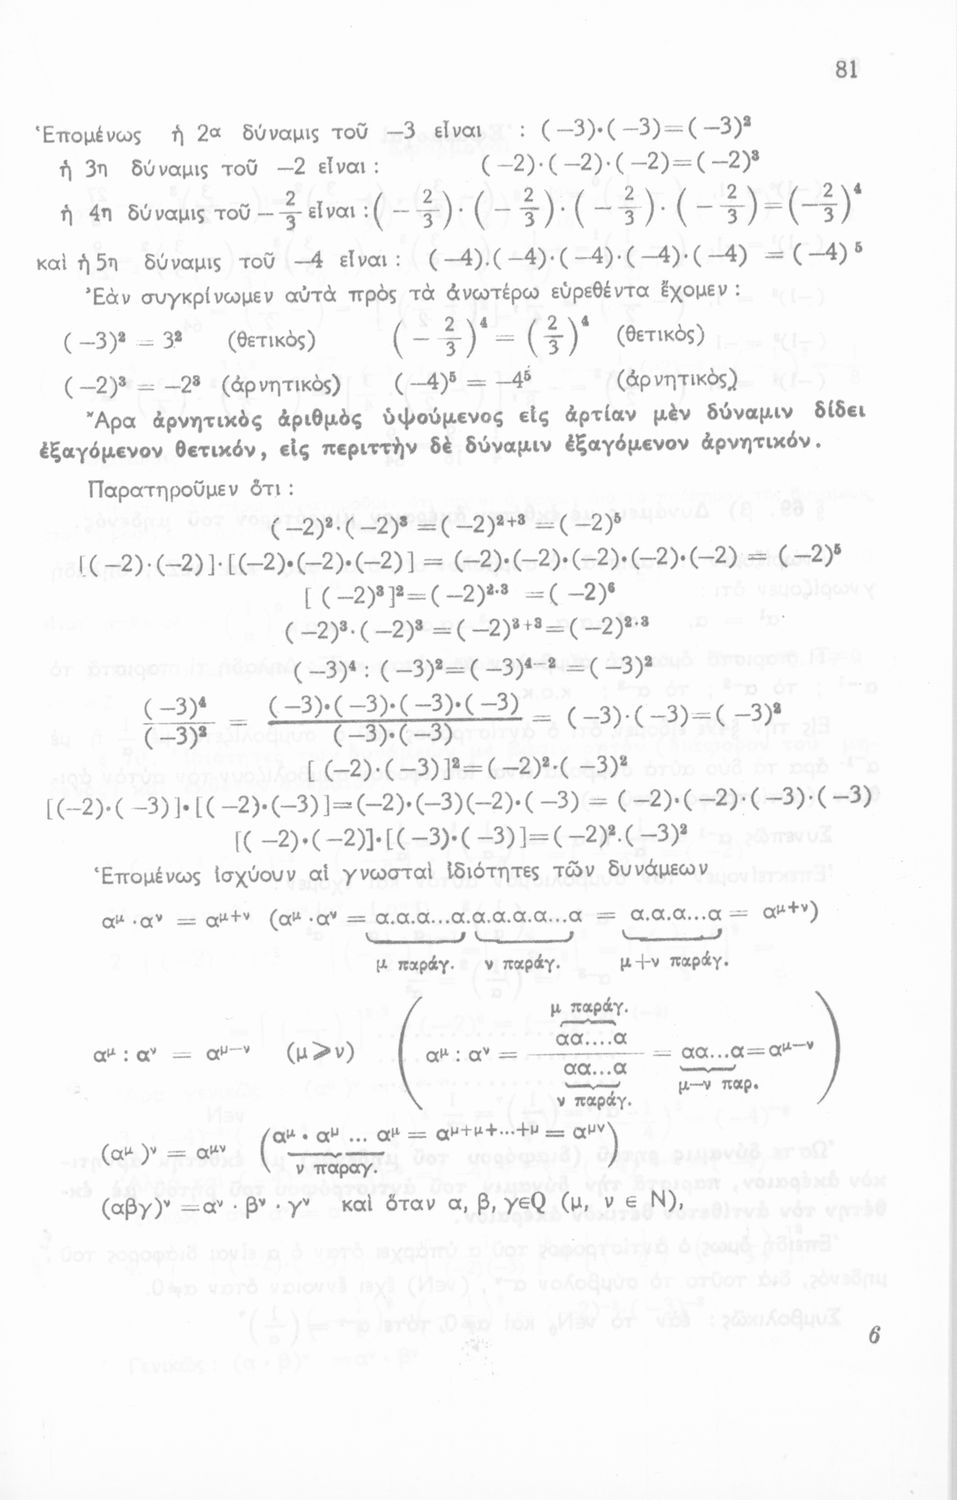 81
Ἑπομένως ἡ 2α δύναμις τοῦ —3 εἶναι : (—3)·(—3)=(—3)²
ἡ 3η δύναμις τοῦ —2 εἶναι : (—2)·(—2)·(—2)=(—2)³
ἡ 4η δύναμις τοῦ —2/3 εἶναι : (—2/3)·(—2/3)·(—2/3)·(—2/3)=(—2/3)⁴
καὶ ἡ 5η δύναμις τοῦ —4 εἶναι : (—4).(—4)·(—4)·(—4)·(—4) =(—4)⁵
Ἐὰν συγκρίνωμεν αὐτὰ πρὸς τὰ ἀνωτέρω εὑρεθέντα ἔχομεν :
(—3)² = 3² (θετικὸς) (—2/3)⁴ = (2/3)⁴ (θετικὸς)
(—2)³ = —2³ (ἀρνητικὸς) (—4)⁵ = —4⁵ (ἀρνητικὸς)
Ἄρα ἀρνητικὸς ἀριθμὸς ὑψούμενος εἰς ἀρτίαν μὲν δύναμιν δίδει
ἐξαγόμενον θετικόν, εἰς περιττὴν δὲ δύναμιν ἐξαγόμενον ἀρνητικόν.
Παρατηροῦμεν ὅτι :
(—2)²·(—2)³ =(—2)²⁺³ =(—2)⁵
[(—2)·(—2)]·[(—2)·(—2)·(—2)] = (—2)·(—2)·(—2)·(—2)·(—2) = (—2)⁵
[(—2)³]²=(—2)²·³ =(—2)⁶
(—2)³·(—2)³ =(—2)³⁺³=(—2)²·³
(—3)⁴ : (—3)²=(—3)⁴⁻² =(—3)²
(—3)⁴/(—3)² = (—3)·(—3)·(—3)·(—3)/(—3)·(—3) = (—3)·(—3)=(—3)²
[(—2).(—3)]²=(—2)².(—3)²
[(—2)·(—3)]·[(—2)·(—3)]=(—2)·(—3)(—2)·(—3) = (—2)·(—2)·(—3)·(—3)
[(—2)·(—2)]·[(—3)·(—3)]=(—2)².(—3)²
Ἑπομένως ἰσχύουν αἱ γνωσταὶ ἰδιότητες τῶν δυνάμεων
α^μ·α^ν = α^(μ+ν) (α^μ·α^ν = α.α.α...α.α.α.α.α...α = α.α.α...α = α^(μ+ν))
μ παράγ. ν παράγ. μ+ν παράγ.
μ παράγ.
α^μ : α^ν = α^(μ—ν) (μ>ν) (α^μ : α^ν = αα....α/αα...α = αα...α=α^(μ—ν))
ν παράγ. μ—ν παρ.
(α^μ)^ν = α^(μν) (α^μ · α^μ ... α^μ = α^(μ+μ+...+μ) = α^(μν))
ν παραγ.
(αβγ)^ν =α^ν · β^ν · γ^ν καὶ ὅταν α, β, γεQ (μ, ν ε N),
6